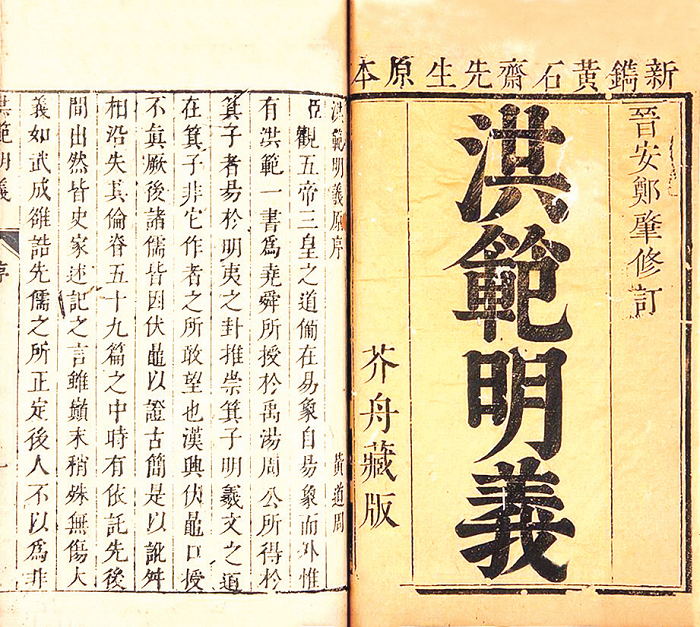 新鐫黃石齋先生原本
晉安鄭肇修訂
洪範明義
芥舟藏版
洪範明義原序　黃道周
臣觀五帝三皇之道備在易象自易象而外惟
有洪範一書為堯舜所授於禹湯周公所得於
箕子者易於明夷之卦推崇箕子明羲文之道
在箕子非它作者之所敢望也漢興伏鼂口授
不眞厥後諸儒皆因伏鼂以證古簡是以訛舛
相沿失其倫脊五十九篇之中時有依託先後
間出然皆史家述記之言雖巔末稍殊無傷大
義如武成雒誥先儒之所正定後人不以為非
洪範明義　序　一